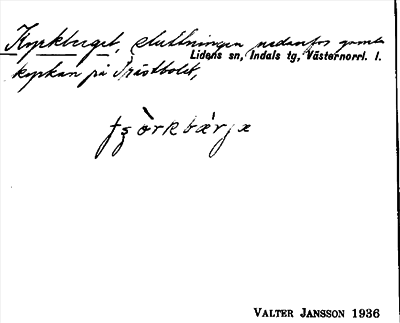 Kyrkberget, sluttningen nedanför gamla
Lidens sn, Indals tg, Västernorrl. l.
kyrkan på Prästbolet,
VALTER JANSSON 1936